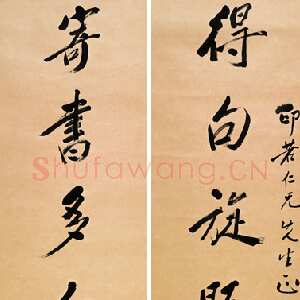 印若仁兄先生正
得句旋
寄書多
Shufawang.CN